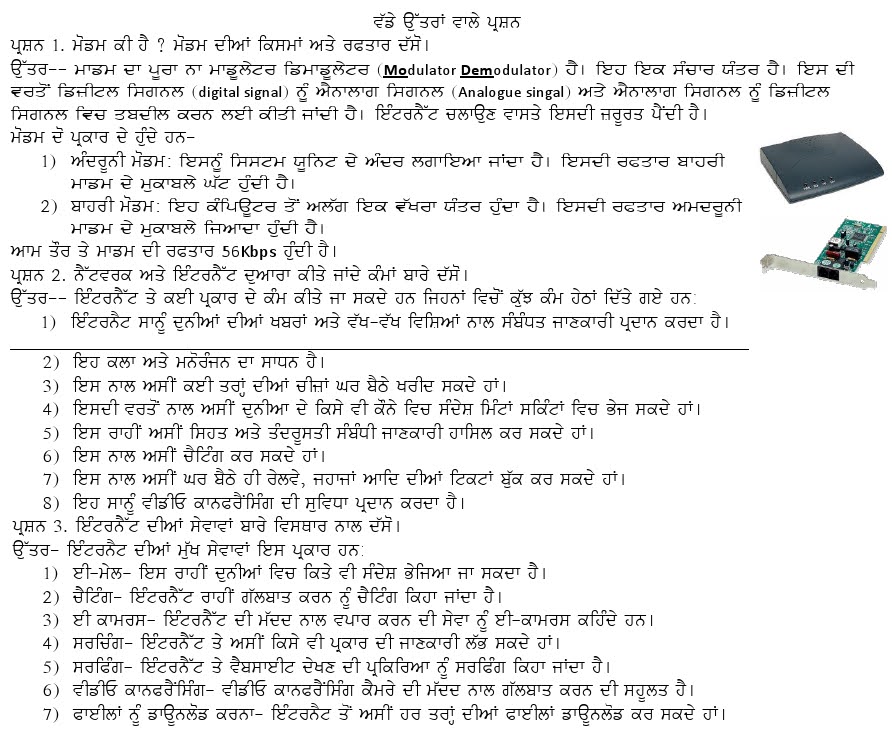 ਵੱਡੇ ਉੱਤਰਾਂ ਵਾਲੇ ਪ੍ਰਸ਼ਨ
ਪ੍ਰਸ਼ਨ 1. ਮੋਡਮ ਕੀ ਹੈ ? ਮੋਡਮ ਦੀਆਂ ਕਿਸਮਾਂ ਅਤੇ ਰਫਤਾਰ ਦੱਸੋ।
ਉੱਤਰ-- ਮਾਡਮ ਦਾ ਪੂਰਾ ਨਾ ਮਾਡੂਲੇਟਰ ਡਿਮਾਡੂਲੇਟਰ (Modulator Demodulator) ਹੈ। ਇਹ ਇਕ ਸੰਚਾਰ ਯੰਤਰ ਹੈ। ਇਸ ਦੀ
ਵਰਤੋਂ ਡਿਜ਼ੀਟਲ ਸਿਗਨਲ (digital signal) ਨੂੰ ਐਨਾਲਾਗ ਸਿਗਨਲ (Analogue singal) ਅਤੇ ਐਨਾਲਾਗ ਸਿਗਨਲ ਨੂੰ ਡਿਜ਼ੀਟਲ
ਸਿਗਨਲ ਵਿਚ ਤਬਦੀਲ ਕਰਨ ਲਈ ਕੀਤੀ ਜਾਂਦੀ ਹੈ। ਇੰਟਰਨੈੱਟ ਚਲਾਉਣ ਵਾਸਤੇ ਇਸਦੀ ਜਰੂਰਤ ਪੈਂਦੀ ਹੈ।
ਮੋਡਮ ਦੋ ਪ੍ਰਕਾਰ ਦੇ ਹੁੰਦੇ ਹਨ-
1) ਅੰਦਰੂਨੀ ਮੋਡਮ: ਇਸਨੂੰ ਸਿਸਟਮ ਯੂਨਿਟ ਦੇ ਅੰਦਰ ਲਗਾਇਆ ਜਾਂਦਾ ਹੈ। ਇਸਦੀ ਰਫਤਾਰ ਬਾਹਰੀ
ਮਾਡਮ ਦੇ ਮੁਕਾਬਲੇ ਘੱਟ ਹੁੰਦੀ ਹੈ।
2) ਬਾਹਰੀ ਮੋਡਮ: ਇਹ ਕੰਪਿਊਟਰ ਤੋਂ ਅਲੱਗ ਇਕ ਵੱਖਰਾ ਯੰਤਰ ਹੁੰਦਾ ਹੈ। ਇਸਦੀ ਰਫਤਾਰ ਅਮਦਰੂਨੀ
ਮਾਡਮ ਦੇ ਮੁਕਾਬਲੇ ਜਿਆਦਾ ਹੁੰਦੀ ਹੈ।
ਆਮ ਤੌਰ ਤੇ ਮਾਡਮ ਦੀ ਰਫਤਾਰ 56Kbps ਹੁੰਦੀ ਹੈ।
ਪ੍ਰਸ਼ਨ 2. ਨੈੱਟਵਰਕ ਅਤੇ ਇੰਟਰਨੈੱਟ ਦੁਆਰਾ ਕੀਤੇ ਜਾਂਦੇ ਕੰਮਾਂ ਬਾਰੇ ਦੱਸੋ।
ਉੱਤਰ-- ਇੰਟਰਨੈੱਟ ਤੇ ਕਈ ਪ੍ਰਕਾਰ ਦੇ ਕੰਮ ਕੀਤੇ ਜਾ ਸਕਦੇ ਹਨ ਜਿਹਨਾਂ ਵਿਚੋਂ ਕੁੱਝ ਕੰਮ ਹੇਠਾਂ ਦਿੱਤੇ ਗਏ ਹਨ:
1) ਇੰਟਰਨੈਟ ਸਾਨੂੰ ਦੁਨੀਆਂ ਦੀਆਂ ਖਬਰਾਂ ਅਤੇ ਵੱਖ-ਵੱਖ ਵਿਸ਼ਿਆਂ ਨਾਲ ਸੰਬੰਧਤ ਜਾਣਕਾਰੀ ਪ੍ਰਦਾਨ ਕਰਦਾ ਹੈ।
2) ਇਹ ਕਲਾ ਅਤੇ ਮਨੋਰੰਜਨ ਦਾ ਸਾਧਨ ਹੈ।
3) ਇਸ ਨਾਲ ਅਸੀਂ ਕਈ ਤਰ੍ਹਾਂ ਦੀਆਂ ਚੀਜ਼ਾਂ ਘਰ ਬੈਠੇ ਖਰੀਦ ਸਕਦੇ ਹਾਂ।
4) ਇਸਦੀ ਵਰਤੋਂ ਨਾਲ ਅਸੀਂ ਦੁਨੀਆ ਦੇ ਕਿਸੇ ਵੀ ਕੌਨੇ ਵਿਚ ਸੰਦੇਸ਼ ਮਿੰਟਾਂ ਸਕਿੰਟਾਂ ਵਿਚ ਭੇਜ ਸਕਦੇ ਹਾਂ।
5) ਇਸ ਰਾਹੀਂ ਅਸੀਂ ਸਿਹਤ ਅਤੇ ਤੰਦਰੁਸਤੀ ਸੰਬੰਧੀ ਜਾਣਕਾਰੀ ਹਾਸਿਲ ਕਰ ਸਕਦੇ ਹਾਂ।
6) ਇਸ ਨਾਲ ਅਸੀਂ ਚੈਟਿੰਗ ਕਰ ਸਕਦੇ ਹਾਂ।
7) ਇਸ ਨਾਲ ਅਸੀਂ ਘਰ ਬੈਠੇ ਹੀ ਰੇਲਵੇ, ਜਹਾਜਾਂ ਆਦਿ ਦੀਆਂ ਟਿਕਟਾਂ ਬੁੱਕ ਕਰ ਸਕਦੇ ਹਾਂ।
8) ਇਹ ਸਾਨੂੰ ਵੀਡੀਓ ਕਾਨਫਰੈਂਸਿੰਗ ਦੀ ਸੁਵਿਧਾ ਪ੍ਰਦਾਨ ਕਰਦਾ ਹੈ।
ਪ੍ਰਸ਼ਨ 3. ਇੰਟਰਨੈੱਟ ਦੀਆਂ ਸੇਵਾਵਾਂ ਬਾਰੇ ਵਿਸਥਾਰ ਨਾਲ ਦੱਸੋ।
ਉੱਤਰ- ਇੰਟਰਨੈਟ ਦੀਆਂ ਮੁੱਖ ਸੇਵਾਵਾਂ ਇਸ ਪ੍ਰਕਾਰ ਹਨ:
1) ਈ-ਮੇਲ- ਇਸ ਰਾਹੀਂ ਦੁਨੀਆਂ ਵਿਚ ਕਿਤੇ ਵੀ ਸੰਦੇਸ਼ ਭੇਜਿਆ ਜਾ ਸਕਦਾ ਹੈ।
2) ਚੈਟਿੰਗ- ਇੰਟਰਨੈੱਟ ਰਾਹੀਂ ਗੱਲਬਾਤ ਕਰਨ ਨੂੰ ਚੈਟਿੰਗ ਕਿਹਾ ਜਾਂਦਾ ਹੈ।
3) ਈ ਕਾਮਰਸ- ਇੰਟਰਨੈੱਟ ਦੀ ਮੱਦਦ ਨਾਲ ਵਪਾਰ ਕਰਨ ਦੀ ਸੇਵਾ ਨੂੰ ਈ-ਕਾਮਰਸ ਕਹਿੰਦੇ ਹਨ।
4) ਸਰਚਿੰਗ- ਇੰਟਰਨੈੱਟ ਤੇ ਅਸੀਂ ਕਿਸੇ ਵੀ ਪ੍ਰਕਾਰ ਦੀ ਜਾਣਕਾਰੀ ਲੱਭ ਸਕਦੇ ਹਾਂ।
5) ਸਰਫਿੰਗ- ਇੰਟਰਨੈੱਟ ਤੇ ਵੈਬਸਾਈਟ ਦੇਖਣ ਦੀ ਪ੍ਰਕਿਰਿਆ ਨੂੰ ਸਰਫਿੰਗ ਕਿਹਾ ਜਾਂਦਾ ਹੈ।
6) ਵੀਡੀਓ ਕਾਨਫਰੈਂਸਿੰਗ- ਵੀਡੀਓ ਕਾਨਫਰੈਂਸਿੰਗ ਕੈਮਰੇ ਦੀ ਮੱਦਦ ਨਾਲ ਗੱਲਬਾਤ ਕਰਨ ਦੀ ਸਹੂਲਤ ਹੈ।
7) ਫਾਈਲਾਂ ਨੂੰ ਡਾਊਨਲੋਡ ਕਰਨਾ- ਇੰਟਰਨੈਟ ਤੋਂ ਅਸੀਂ ਹਰ ਤਰ੍ਹਾਂ ਦੀਆਂ ਫਾਈਲਾਂ ਡਾਊਨਲੋਡ ਕਰ ਸਕਦੇ ਹਾਂ।